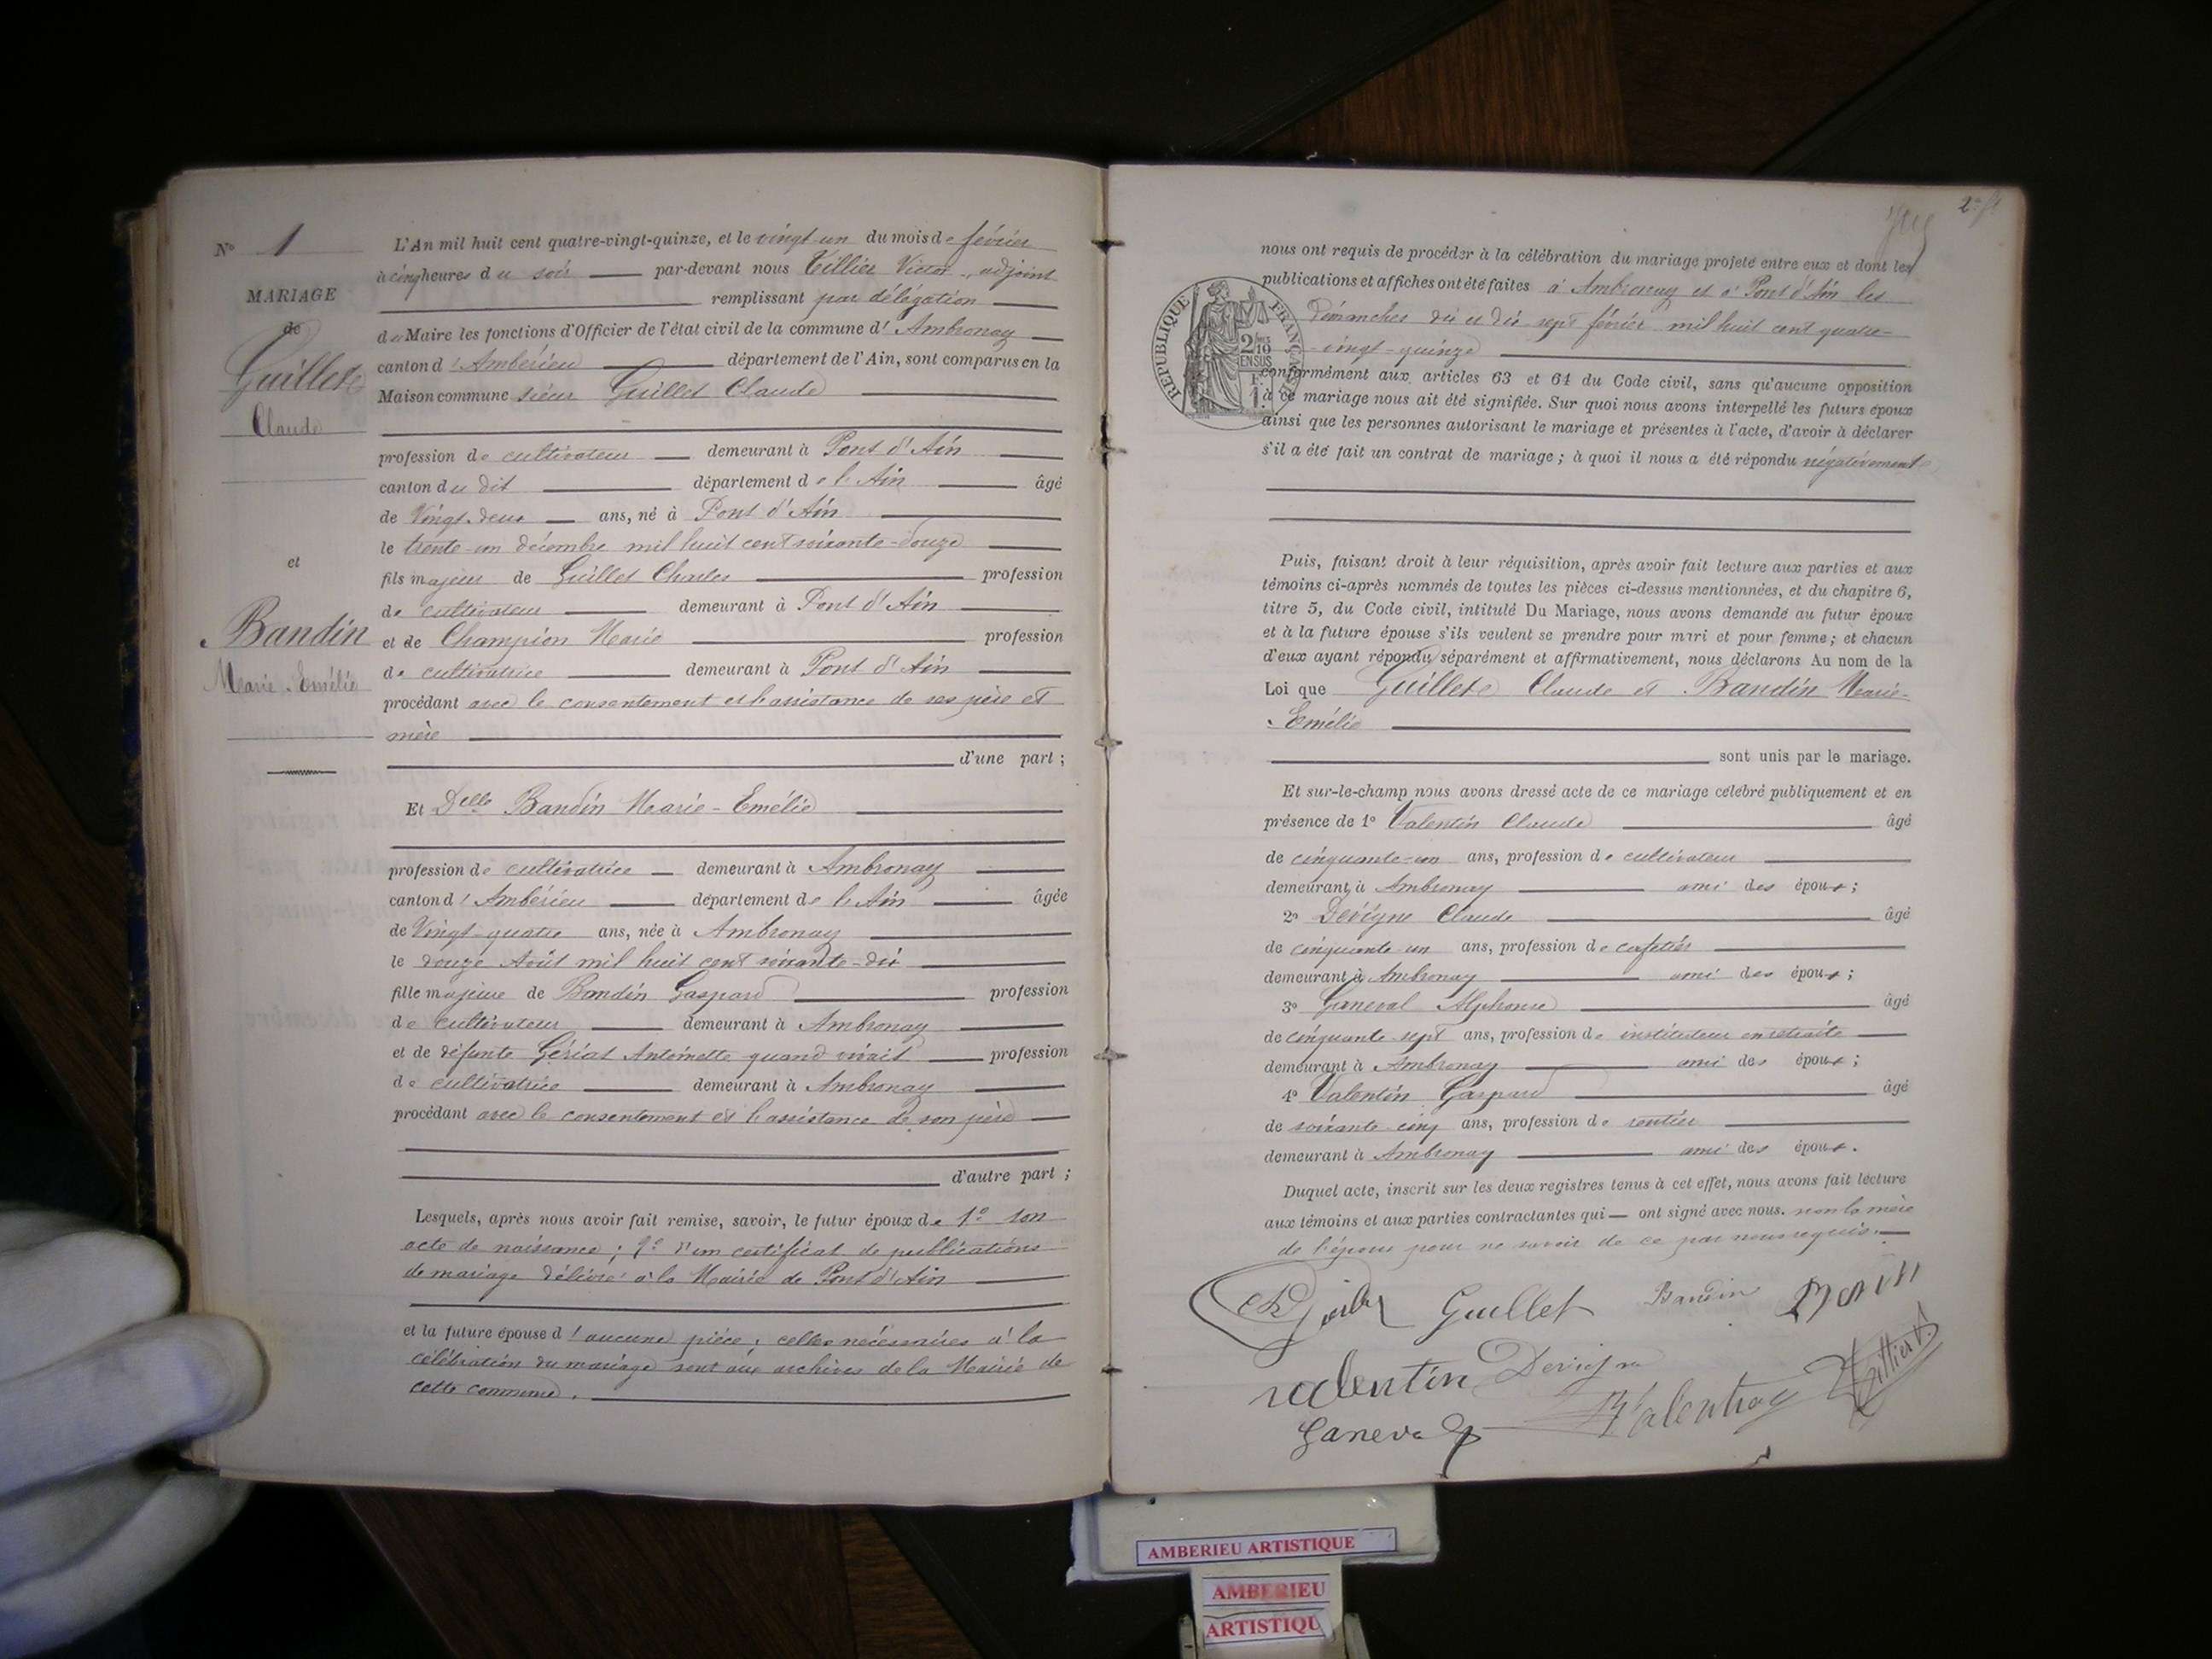 N° 1
MARIAGE
de
Guillet
Claude
et
Bandin
Marie-Emélie
L'An mil huit cent quatre-vingt-quinze, et le vingt un du mois de février
à cinq heures du soir par-devant nous Tillier Victor, adjoint
remplissant par délégation
du Maire les fonctions d'Officier de l'état civil de la commune d'Ambronay
canton d'Ambérieu département de l'Ain, sont comparus en la
Maison commune sieur Guillet Claude
profession de cultivateur demeurant à Pont d'Ain
canton du dit département de l'Ain âgé
de Vingt-deux ans, né à Pont d'Ain
le trente-un décembre mil huit cent soixante-douze
fils majeur de Guillet Charles profession
de cultivateur demeurant à Pont d'Ain
et de Champion Marie profession
de cultivatrice demeurant à Pont d'Ain
procédant avec le consentement et l'assistance de ses père et
mère
d'une part ;
Et Delle Bandin Marie-Emélie
profession de cultivatrice demeurant à Ambronay
canton d'Ambérieu département de l'Ain âgée
de Vingt-quatre ans, née à Ambronay
le douze Août mil huit cent soixante-dix
fille majeure de Bandin Gaspard profession
de cultivateur demeurant à Ambronay
et de défunte Gériat Antoinette quand vivait profession
de cultivatrice demeurant à Ambronay
procédant avec le consentement et l'assistance de son père
d'autre part ;
Lesquels, après nous avoir fait remise, savoir, le futur époux de 1° son
acte de naissance ; 2° d'un certificat de publications
de mariage délivré à la Mairie de Pont d'Ain
et la future épouse d'aucune pièce, celles nécessaires à la
célébration du mariage sont aux archives de la Mairie de
cette commune.
2e ft
nous ont requis de procéder à la célébration du mariage projeté entre eux et dont les
publications et affiches ont été faites à Ambronay et à Pont d'Ain les
dimanches dix et dix-sept février mil huit cent quatre-
vingt-quinze
RÉPUBLIQUE FRANÇAISE
2/10 EN SUS
F. 1.
conformément aux articles 63 et 64 du Code civil, sans qu'aucune opposition
à ce mariage nous ait été signifiée. Sur quoi nous avons interpellé les futurs époux
ainsi que les personnes autorisant le mariage et présentes à l'acte, d'avoir à déclarer
s'il a été fait un contrat de mariage ; à quoi il nous a été répondu négativement
Puis, faisant droit à leur réquisition, après avoir fait lecture aux parties et aux
témoins ci-après nommés de toutes les pièces ci-dessus mentionnées, et du chapitre 6,
titre 5, du Code civil, intitulé Du Mariage, nous avons demandé au futur époux
et à la future épouse s'ils veulent se prendre pour mari et pour femme ; et chacun
d'eux ayant répondu séparément et affirmativement, nous déclarons Au nom de la
Loi que Guillet Claude et Bandin Marie-
Emélie
sont unis par le mariage.
Et sur-le-champ nous avons dressé acte de ce mariage célébré publiquement et en
présence de 1° Valentin Claude âgé
de cinquante-un ans, profession de cultivateur
demeurant à Ambronay ami des époux ;
2° Devigne Claude âgé
de cinquante-un ans, profession de cafetier
demeurant à Ambronay ami des époux ;
3° Ganeval Alphonse âgé
de cinquante-sept ans, profession de instituteur en retraite
demeurant à Ambronay ami des époux ;
4° Valentin Gaspard âgé
de soixante-cinq ans, profession de rentier
demeurant à Ambronay ami des époux.
Duquel acte, inscrit sur les deux registres tenus à cet effet, nous avons fait lecture
aux témoins et aux parties contractantes qui ont signé avec nous. non la mère
de l'époux pour ne savoir de ce par nous requis.
Guillet Bandin
valentin Devigne Tillier V.
Ganeval
AMBERIEU ARTISTIQUE
AMBERIEU
ARTISTIQU